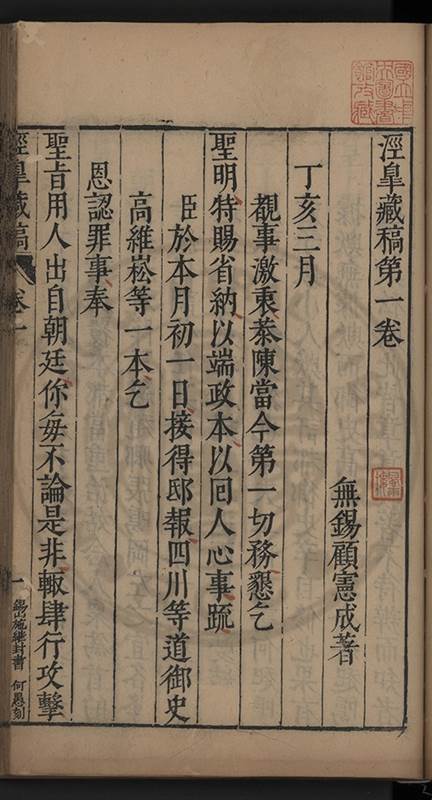 涇臯藏稿第一卷
無錫顧憲成著
丁亥三月
覩事激衷恭陳當今第一切務懇乞
聖明特賜省納以端政本以囘人心事䟽
臣於本月初一日接得邸報四川等道御史
高維崧等一本乞
恩認罪事奉
聖旨用人出自朝廷你每不論是非輒肆行攻擊
涇臯藏稿
卷一
一
錫山施樂封書 何愚刻